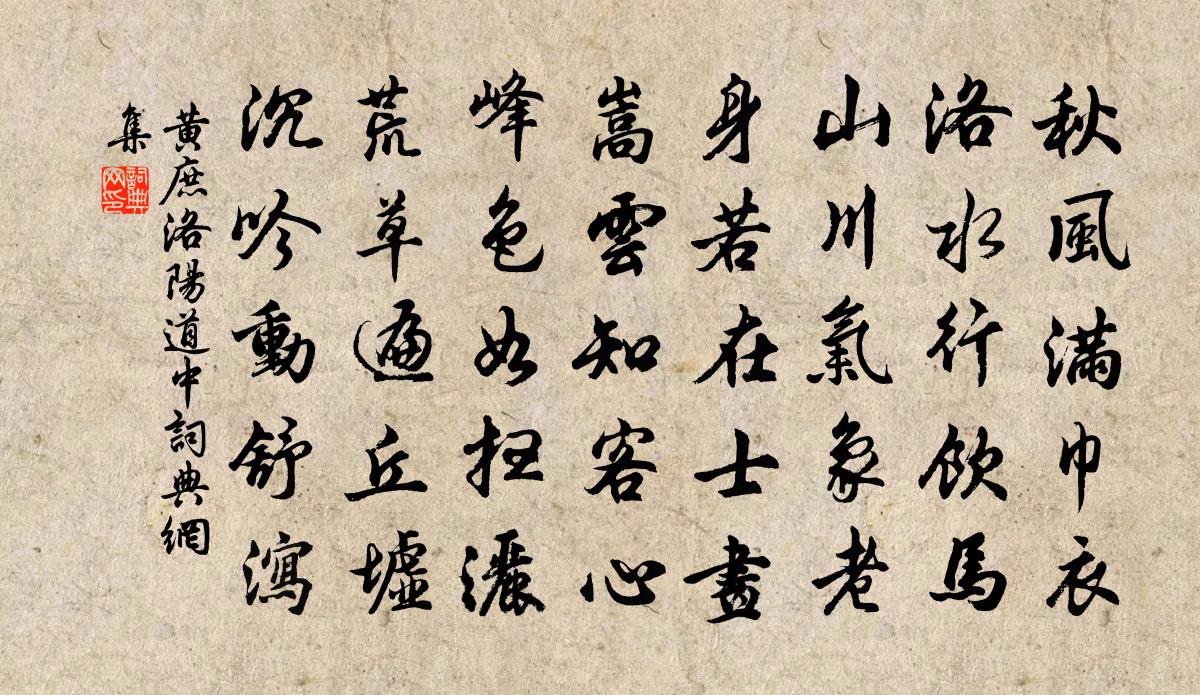 秋風滿巾衣
洛水行飲馬
山川氣象老
身若在士畫
嵩雲知客心
峰色如掃灑
荒草遍丘墟
沉吟動舒瀉
黃庶洛陽道中詞典網
集
詞典
网印